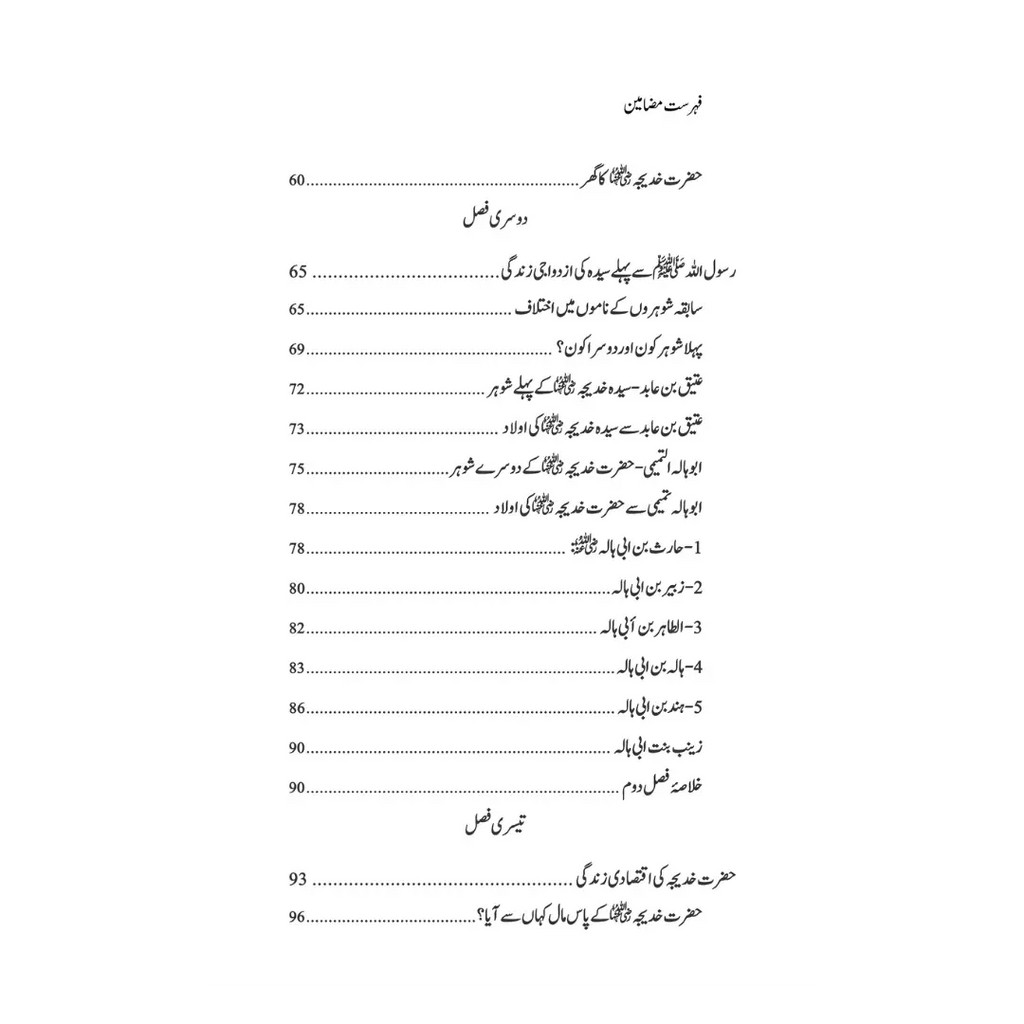 فہرست مضامین
حضرت خدیجہ رضی اللہ عنہا کا گھر ............................................................. 60
دوسری فصل
رسول اللہ ﷺ سے پہلے سیدہ کی ازدواجی زندگی .................................... 65
سابقہ شوہروں کے ناموں میں اختلاف .............................................. 65
پہلا شوہر کون اور دوسرا کون؟ ....................................................... 69
عتیق بن عابد-سیدہ خدیجہ رضی اللہ عنہا کے پہلے شوہر ........................................ 72
عتیق بن عابد سے سیدہ خدیجہ رضی اللہ عنہا کی اولاد ........................................... 73
ابوہالہ التمیمی-حضرت خدیجہ رضی اللہ عنہا کے دوسرے شوہر ................................ 75
ابوہالہ تمیمی سے حضرت خدیجہ رضی اللہ عنہا کی اولاد ......................................... 78
1-حارث بن ابی ہالہ رضی اللہ عنہ: .......................................................... 78
2-زبیر بن ابی ہالہ .................................................................... 80
3-الطاہر بن أبی ہالہ ................................................................. 82
4-ہالہ بن ابی ہالہ ..................................................................... 83
5-ہند بن ابی ہالہ ..................................................................... 86
زینب بنت ابی ہالہ .................................................................... 90
خلاصۂ فصل دوم ...................................................................... 90
تیسری فصل
حضرت خدیجہ کی اقتصادی زندگی .................................................. 93
حضرت خدیجہ رضی اللہ عنہا کے پاس مال کہاں سے آیا؟ ...................................... 96